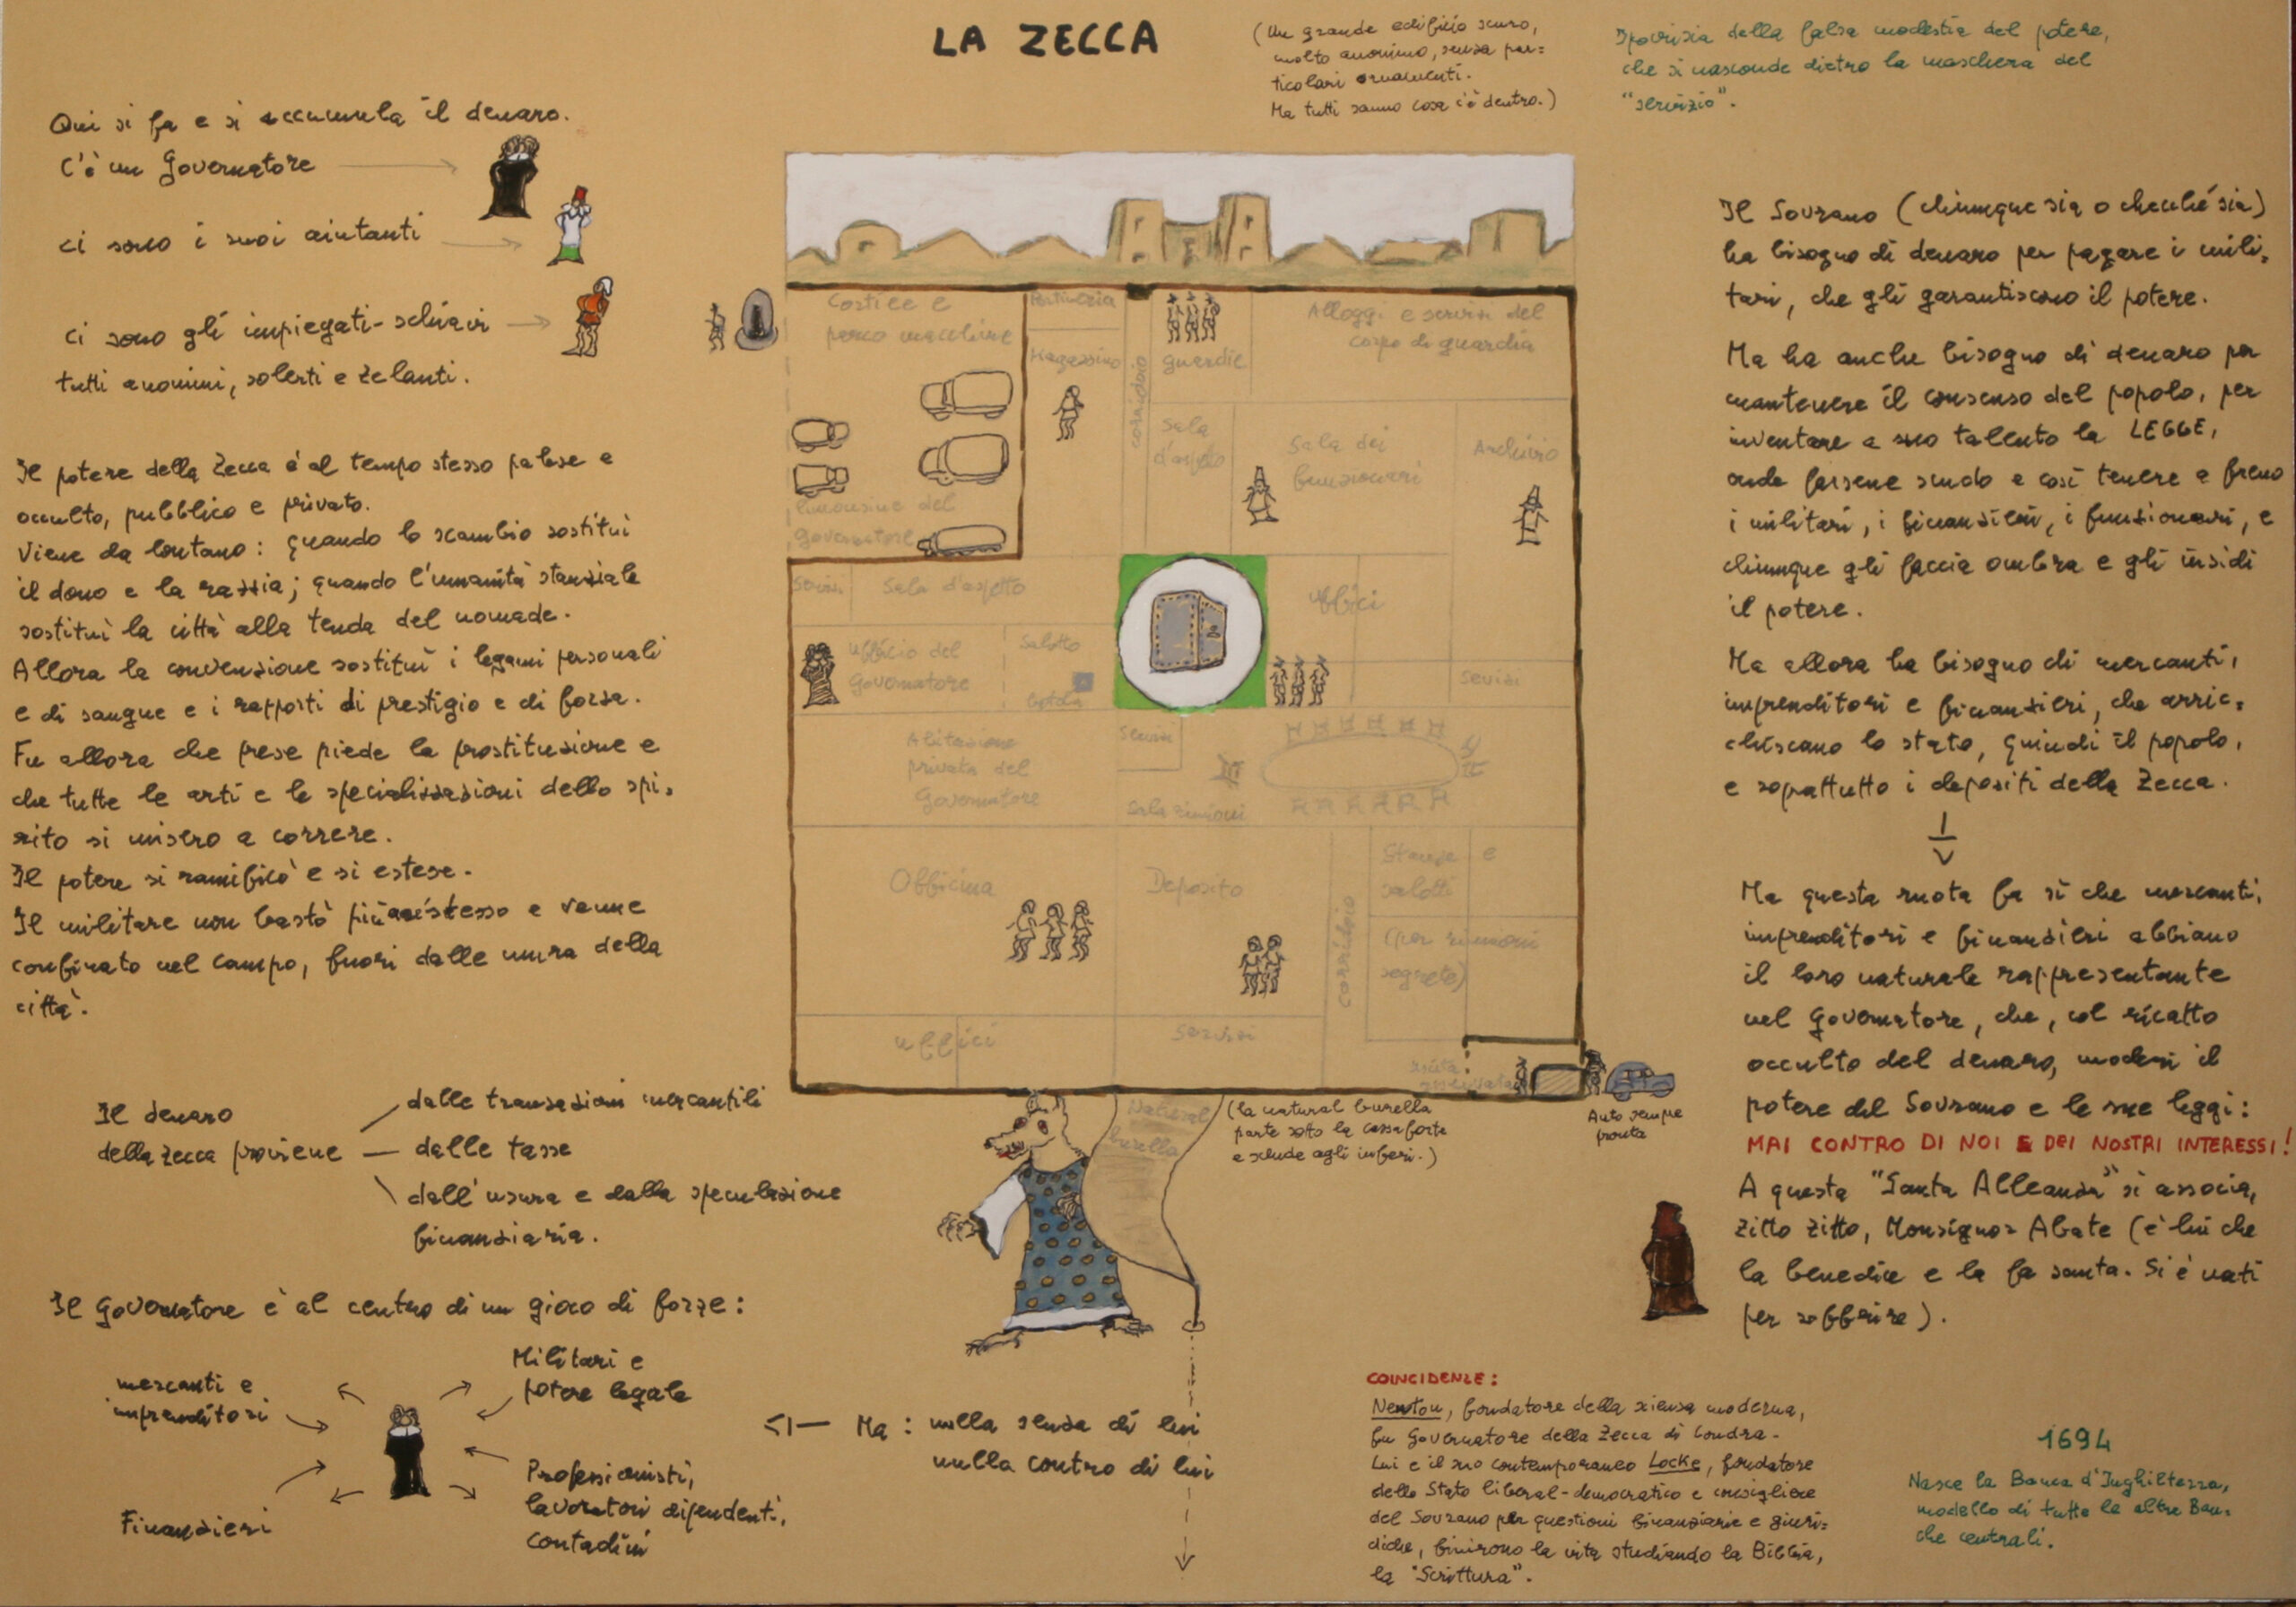 LA ZECCA
(Un grande edificio scuro,
molto anonimo, senza par=
ticolari ornamenti.
Ma tutti sanno cosa c'è dentro.)
Ipocrisia della falsa modestia del potere,
che si nasconde dietro la maschera del
"servizio".
Qui si fa e si accumula il denaro.
C'è un Governatore
ci sono i suoi aiutanti
ci sono gli impiegati-schiavi
tutti anonimi, solerti e zelanti.
Il potere della Zecca è al tempo stesso palese e
occulto, pubblico e privato.
Viene da lontano: quando lo scambio sostituì
il dono e la razzia; quando l'umanità stanziale
sostituì la città alla tenda del nomade.
Allora la convenzione sostituì i legami personali
e di sangue e i rapporti di prestigio e di forza.
Fu allora che prese piede la prostituzione e
che tutte le arti e le specializzazioni dello spi=
rito si misero a correre.
Il potere si ramificò e si estese.
Il militare non bastò più a se stesso e venne
confinato nel campo, fuori dalle mura della
città.
Il denaro
della Zecca proviene
dalle transazioni mercantili
dalle tasse
dall'usura e dalla speculazione
finanziaria.
Il Governatore è al centro di un gioco di forze:
mercanti e
imprenditori
Militari e
potere legale
Finanzieri
Professionisti,
lavoratori dipendenti,
contadini
Ma: nulla senza di lui
nulla contro di lui
Cortile e
parco macchine
limousine del
governatore
Portineria
Magazzino
corridoio
guardie
Alloggi e servizi del
corpo di guardia
Sala
d'aspetto
Sala dei
funzionari
Archivio
Servizi
Sala d'aspetto
Ufficio del
Governatore
Salotto
Uffici
Servizi
Abitazione
privata del
Governatore
Servizi
Sala riunioni
Officina
Deposito
corridoio
Stanze e
salotti
(per riunioni
segrete)
Uffici
Servizi
uscita
riservata
Auto sempre
pronta
Natural
burella
(la natural burella
parte sotto la cassaforte
e scende agli inferi.)
Il Sovrano (chiunque sia o checché sia)
ha bisogno di denaro per pagare i mili=
tari, che gli garantiscono il potere.
Ma ha anche bisogno di denaro per
mantenere il consenso del popolo, per
inventare a suo talento la LEGGE,
onde farsene scudo e così tenere a freno
i militari, i finanzieri, i funzionari, e
chiunque gli faccia ombra e gli insidi
il potere.
Ma allora ha bisogno di mercanti,
imprenditori e finanzieri, che arric=
chiscano lo stato, quindi il popolo,
e soprattutto i depositi della Zecca.
Ma questa ruota fa sì che mercanti,
imprenditori e finanzieri abbiano
il loro naturale rappresentante
nel Governatore, che, col ricatto
occulto del denaro, moderi il
potere del Sovrano e le sue leggi:
MAI CONTRO DI NOI E DEI NOSTRI INTERESSI!
A questa "Santa Alleanza" si associa,
zitto zitto, Monsignor Abate (è lui che
la benedice e la fa santa. Si è nati
per soffrire).
COINCIDENZE:
Newton, fondatore della scienza moderna,
fu Governatore della Zecca di Londra.
Lui e il suo contemporaneo Locke, fondatore
dello Stato liberal-democratico e consigliere
del Sovrano per questioni finanziarie e giuri=
diche, finirono la vita studiando la Bibbia,
la "Scrittura".
1694
Nasce la Banca d'Inghilterra,
modello di tutte le altre Ban=
che centrali.